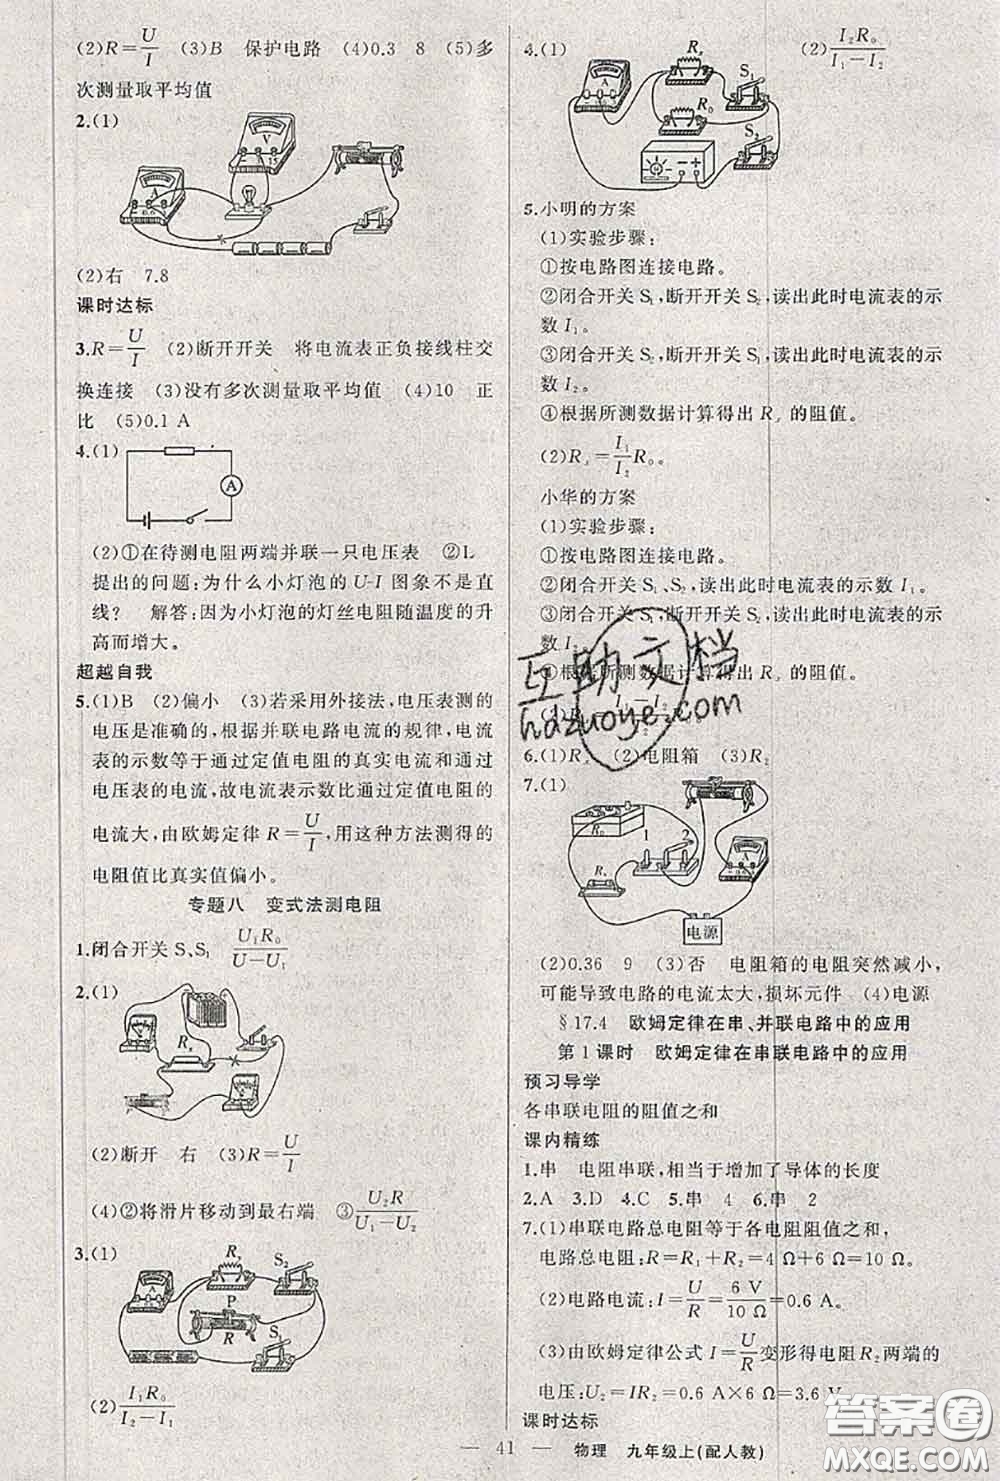 (2)R=U/I (3)B 保护电路 (4)0.3 8 (5)多
次测量取平均值
2.(1)
V
A
(2)右 7.8
课时达标
3.R=U/I (2)断开开关 将电流表正负接线柱交
换连接 (3)没有多次测量取平均值 (4)10 正
比 (5)0.1 A
4.(1)
A
(2)①在待测电阻两端并联一只电压表 ②L
提出的问题:为什么小灯泡的U-I图象不是直
线? 解答:因为小灯泡的灯丝电阻随温度的升
高而增大。
超越自我
5.(1)B (2)偏小 (3)若采用外接法,电压表测的
电压是准确的,根据并联电路电流的规律,电流
表的示数等于通过定值电阻的真实电流和通过
电压表的电流,故电流表示数比通过定值电阻的
电流大,由欧姆定律R=U/I,用这种方法测得的
电阻值比真实值偏小。
专题八 变式法测电阻
1.闭合开关S、S₁ U₁R₀/(U-U₁)
2.(1)
Rₓ
(2)断开 右 (3)R=U/I
(4)②将滑片移动到最右端 ③U₂R/(U₁-U₂)
3.(1)
Rₓ
S₂
A
P
R
S₁
(2)I₁R₀/(I₂-I₁)
4.(1)
Rₓ
S₁
A
R₀
S₂
(2)I₂R₀/(I₁-I₂)
5.小明的方案
(1)实验步骤:
①按电路图连接电路。
②闭合开关S₁,断开开关S₂,读出此时电流表的示
数I₁。
③闭合开关S₂,断开开关S₁,读出此时电流表的示
数I₂。
④根据所测数据计算得出Rₓ的阻值。
(2)Rₓ=I₁/I₂R₀。
小华的方案
(1)实验步骤:
①按电路图连接电路。
②闭合开关S₁、S₂,读出此时电流表的示数I₁。
③闭合开关S₁,断开开关S₂,读出此时电流表的示
数I₂
④根据所测数据计算得出Rₓ的阻值。
互助文档
hdzuoye.com
6.(1)Rₓ (2)电阻箱 (3)R₂
7.(1)
R₀
1
2
Rₓ
A
电源
(2)0.36 9 (3)否 电阻箱的电阻突然减小,
可能导致电路的电流太大,损坏元件 (4)电源
§17.4 欧姆定律在串、并联电路中的应用
第1课时 欧姆定律在串联电路中的应用
预习导学
各串联电阻的阻值之和
课内精练
1.串 电阻串联,相当于增加了导体的长度
2.A 3.D 4.C 5.串 4 6.串 2
7.(1)串联电路总电阻等于各电阻阻值之和,
电路总电阻:R=R₁+R₂=4 Ω+6 Ω=10 Ω。
(2)电路电流:I=U/R=6 V/10 Ω=0.6 A。
(3)由欧姆定律公式I=U/R变形得电阻R₂两端的
电压:U₂=IR₂=0.6 A×6 Ω=3.6 V。
课时达标
— 41 — 物理 九年级上(配人教)
答案圈
MXQE.COM